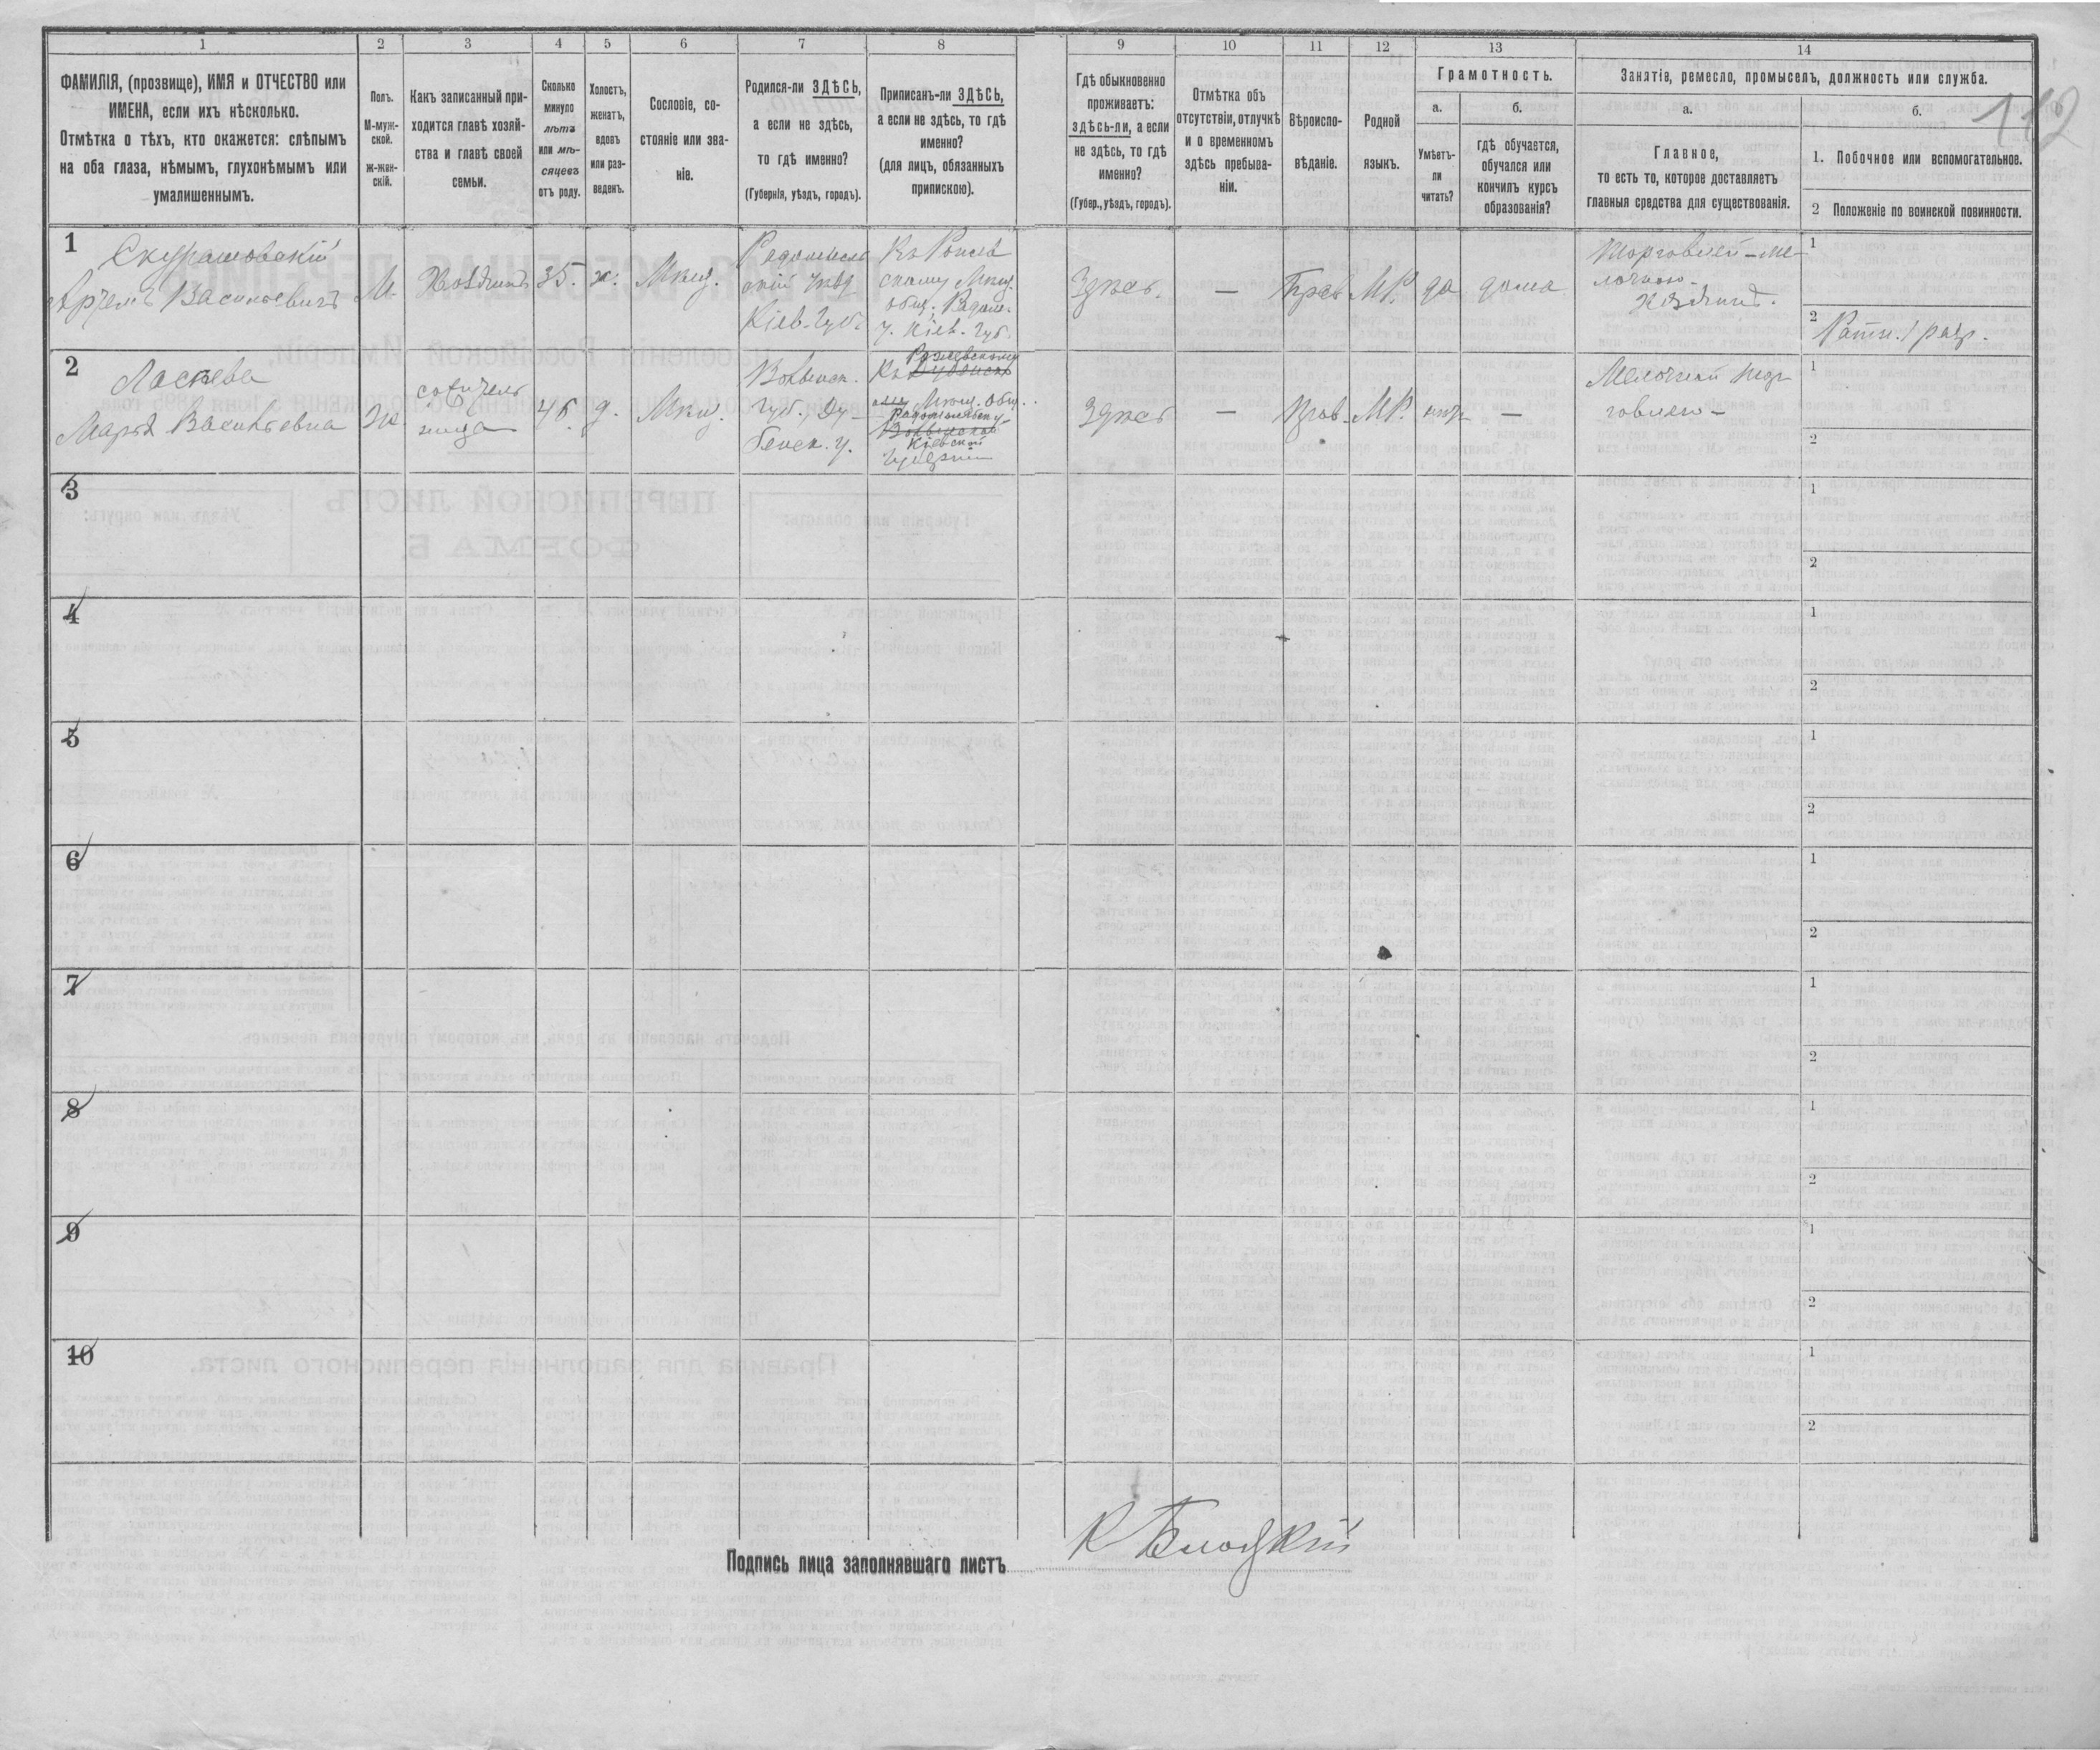 1 2 3 4 5 6 7 8 9 10 11 12 13 14
ФАМИЛІЯ, (прозвище), ИМЯ и ОТЧЕСТВО или
ИМЕНА, если ихъ нѣсколько.
Отмѣтка о тѣхъ, кто окажется: слѣпымъ
на оба глаза, нѣмымъ, глухонѣмымъ или
умалишеннымъ.
Полъ.
М-муж-
ской.
ж-жен-
скій.
Какъ записанный при-
ходится главѣ хозяй-
ства и главѣ своей
семьи.
Сколько
минуло
лѣтъ
или мѣ-
сяцевъ
отъ роду.
Холостъ,
женатъ,
вдовъ
или раз-
веденъ.
Сословіе, со-
стояніе или зва-
ніе.
Родился-ли ЗДѢСЬ,
а если не здѣсь,
то гдѣ именно?
(Губернія, уѣздъ, городъ).
Приписанъ-ли ЗДѢСЬ,
а если не здѣсь, то гдѣ
именно?
(для лицъ, обязанныхъ
припискою).
Гдѣ обыкновенно
проживаетъ:
здѣсь-ли, а если
не здѣсь, то гдѣ
именно?
(Губер., уѣздъ, городъ).
Отмѣтка объ
отсутствіи, отлучкѣ
и о временномъ
здѣсь пребыва-
ніи.
Вѣроиспо-
вѣданіе.
Родной
языкъ.
Грамотность.
а.
Умѣетъ-
ли
читать?
б.
гдѣ обучается,
обучался или
кончилъ курсъ
образованія?
Занятіе, ремесло, промыселъ, должность или служба.
а.
Главное,
то есть то, которое доставляетъ
главныя средства для существованія.
б.
1. Побочное или вспомогательное.
2 Положеніе по воинской повинности.
112
1
Скурашовскій
Артемъ Васильевичъ
М.
Хозяинъ
35.
х.
Мѣщ.
Радомысль
скій уѣзд
Кіев. Губ.
скому Мѣщ.
у. Кіев. Губ.
Здѣсь.
—
Прав
М.Р.
да
дома
Торговлей - ме-
лочною -
хозяинъ.
1
2
Ратн. 1 разр.
2
Ласкева
Марья Васильевна
Ж
сожитель
ница
46.
д.
Мѣщ.
Волынск.
Губ., Ду-
бенск. у.
Къ
Мѣщ. Общ.
Кіевской
Губерніи
Здѣсь
—
Прав.
М.Р.
нѣт
—
Мелочной тор
говлею -
1
2
3
1
2
4
1
2
5
1
2
6
1
2
7
1
2
8
1
2
9
1
2
10
1
2
Подпись лица заполнявшаго листъ